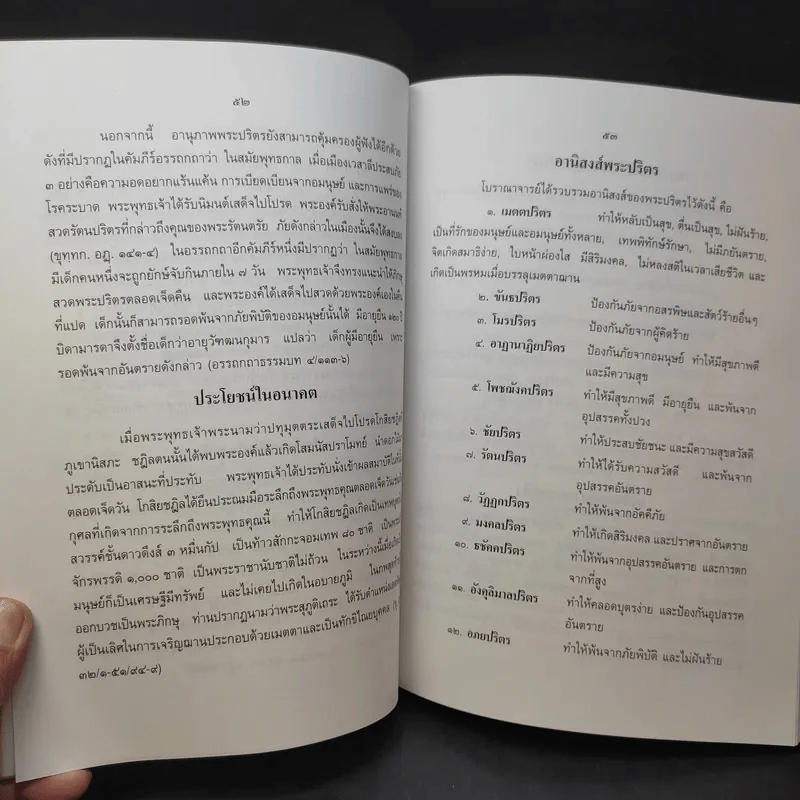 ๕๒
นอกจากนี้ อานุภาพพระปริตรยังสามารถคุ้มครองผู้ฟังได้อีกด้วย
ดังที่มีปรากฏในคัมภีร์อรรถกถาว่า ในสมัยพุทธกาล เมื่อเมืองเวสาลีประสบภัย
๓ อย่างคือความอดอยากแร้นแค้น การเบียดเบียนจากอมนุษย์ และการแพร่ของ
โรคระบาด พระพุทธเจ้าได้รับนิมนต์เสด็จไปโปรด พระองค์รับสั่งให้พระอานนท์
สวดรัตนปริตรที่กล่าวถึงคุณของพระรัตนตรัย ภัยดังกล่าวในเมืองนั้นจึงได้สงบลง
(ขุททก. อฏ. ๑๔๑-๔) ในอรรถกถาอีกคัมภีร์หนึ่งมีปรากฏว่า ในสมัยพุทธกาล
มีเด็กคนหนึ่งจะถูกยักษ์จับกินภายใน ๗ วัน พระพุทธเจ้าจึงทรงแนะนำให้ภิกษุ
สวดพระปริตรตลอดเจ็ดคืน และพระองค์ได้เสด็จไปสวดด้วยพระองค์เองในคืน
ที่แปด เด็กนั้นก็สามารถรอดพ้นจากภัยพิบัติของอมนุษย์นั้นได้ มีอายุยืน ๑๒๐ ปี
บิดามารดาจึงตั้งชื่อเด็กว่าอายุวัฑฒนกุมาร แปลว่า เด็กผู้มีอายุยืน เพราะ
รอดพ้นจากอันตรายดังกล่าว (อรรถกถาธรรมบท ๔/๑๑๓-๖)
ประโยชน์ในอนาคต
เมื่อพระพุทธเจ้าพระนามว่าปทุมุตตระเสด็จไปโปรดโกสิยชฎิลที่
ภูเขานิสภะ ชฎิลตนนั้นได้พบพระองค์แล้วเกิดโสมนัสปราโมทย์ นำดอกไม้มา
ประดับเป็นอาสนะที่ประทับ พระพุทธเจ้าได้ประทับนั่งเข้าผลสมาบัติในที่นั้น
ตลอดเจ็ดวัน โกสิยชฎิลได้ยืนประณมมือระลึกถึงพระพุทธคุณตลอดเจ็ดวันเช่นกัน
กุศลที่เกิดจากการระลึกถึงพระพุทธคุณนี้ ทำให้โกสิยชฎิลเกิดเป็นเทพบุตรใน
สวรรค์ชั้นดาวดึงส์ ๓ หมื่นกัป เป็นท้าวสักกะจอมเทพ ๘๐ ชาติ เป็นพระเจ้า
จักรพรรดิ ๑,๐๐๐ ชาติ เป็นพระราชานับชาติไม่ถ้วน ในระหว่างนี้เมื่อเกิดเป็น
มนุษย์ก็เป็นเศรษฐีมีทรัพย์ และไม่เคยไปเกิดในอบายภูมิ ในภพสุดท้าย
ออกบวชเป็นพระภิกษุ ท่านปรากฏนามว่าพระสุภูติเถระ ได้รับตำแหน่งเอตทัคคะ
ผู้เป็นเลิศในการเจริญฌานประกอบด้วยเมตตาและเป็นทักขิไณยบุคคล
๓๒/๑-๕๑/๙๔-๙)
๕๓
อานิสงส์พระปริตร
โบราณาจารย์ได้รวบรวมอานิสงส์ของพระปริตรไว้ดังนี้ คือ
๑. เมตตปริตร ทำให้หลับเป็นสุข, ตื่นเป็นสุข, ไม่ฝันร้าย,
เป็นที่รักของมนุษย์และอมนุษย์ทั้งหลาย, เทพพิทักษ์รักษา, ไม่มีภยันตราย,
จิตเกิดสมาธิง่าย, ใบหน้าผ่องใส มีสิริมงคล, ไม่หลงสติในเวลาเสียชีวิต และ
เกิดเป็นพรหมเมื่อบรรลุเมตตาฌาน
๒. ขันธปริตร ป้องกันภัยจากอสรพิษและสัตว์ร้ายอื่นๆ
๓. โมรปริตร ป้องกันภัยจากผู้คิดร้าย
๔. อาฏานาฏิยปริตร ป้องกันภัยจากอมนุษย์ ทำให้มีสุขภาพดี
และมีความสุข
๕. โพชฌังคปริตร ทำให้มีสุขภาพดี มีอายุยืน และพ้นจาก
อุปสรรคทั้งปวง
๖. ชัยปริตร ทำให้ประสบชัยชนะ และมีความสุขสวัสดี
๗. รัตนปริตร ทำให้ได้รับความสวัสดี และพ้นจาก
อุปสรรคอันตราย
๘. วัฏฏกปริตร ทำให้พ้นจากอัคคีภัย
๙. มงคลปริตร ทำให้เกิดสิริมงคล และปราศจากอันตราย
๑๐. ธชัคคปริตร ทำให้พ้นจากอุปสรรคอันตราย และการตก
จากที่สูง
๑๑. อังคุลิมาลปริตร ทำให้คลอดบุตรง่าย และป้องกันอุปสรรค
อันตราย
๑๒. อภยปริตร ทำให้พ้นจากภัยพิบัติ และไม่ฝันร้าย